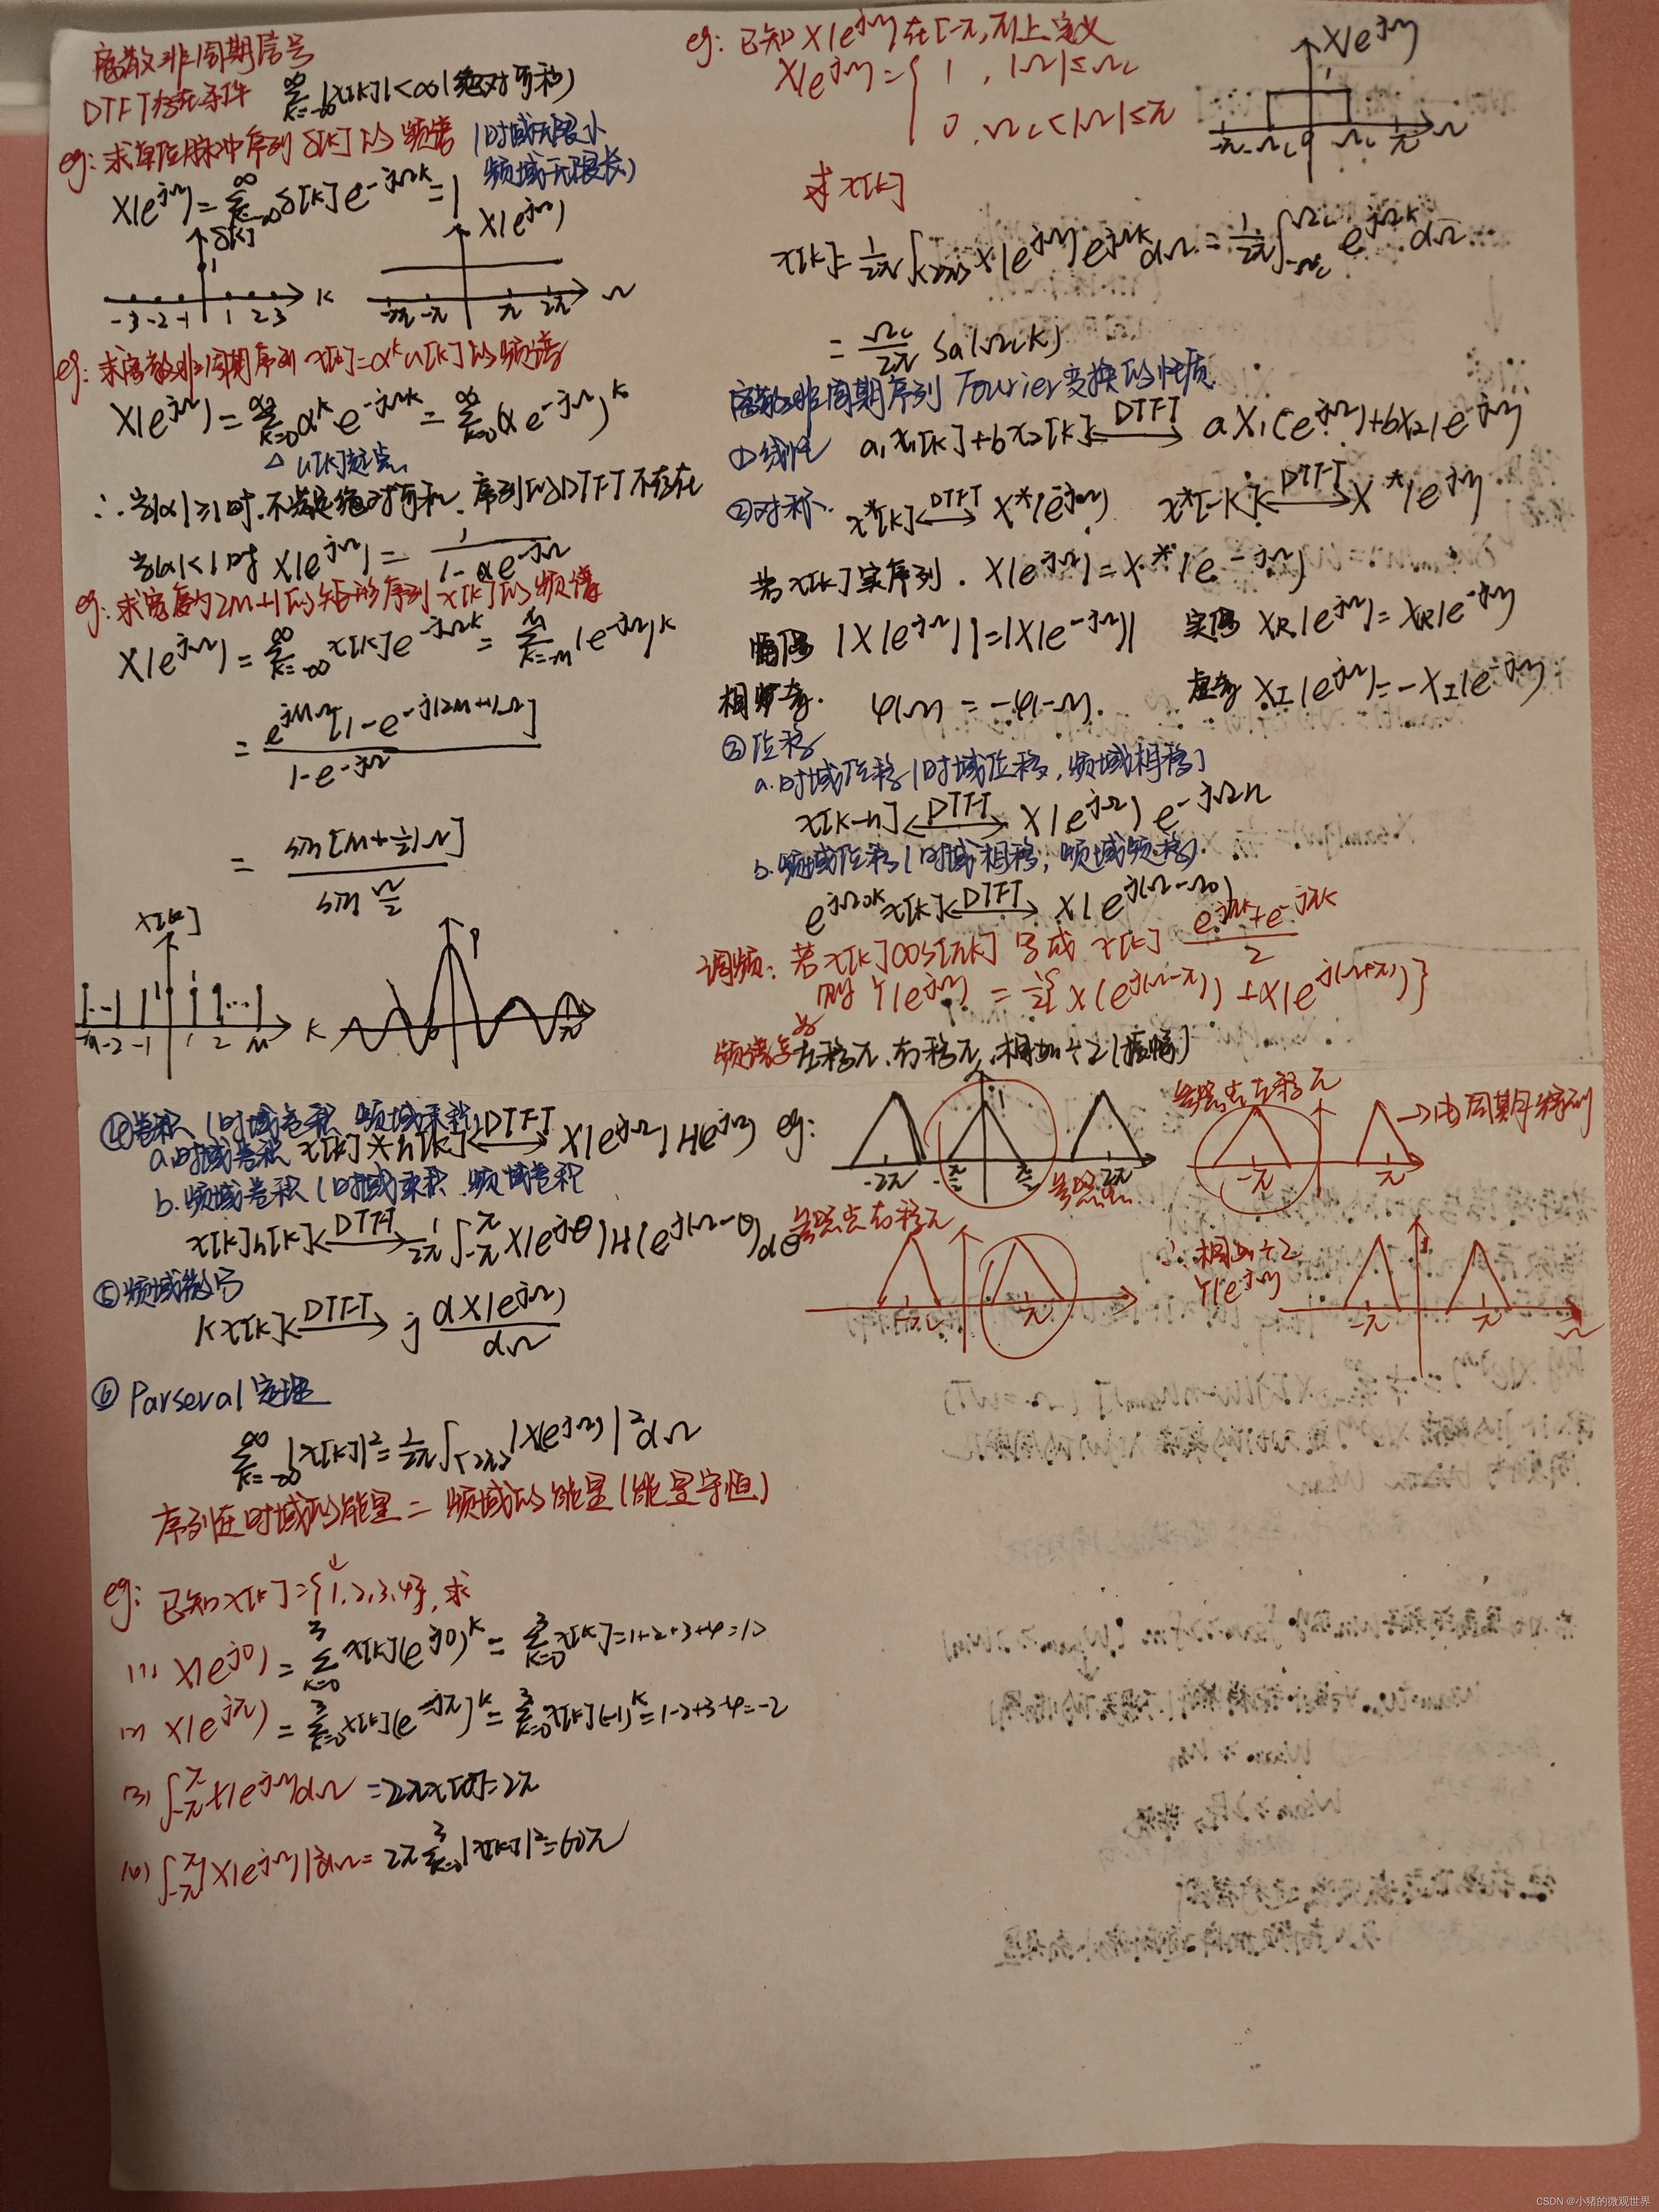 离散非周期信号
DTFT存在条件 ∞Σk=-∞ |x[k]|<∞(绝对可积)
eg: 求单位脉冲序列 δ[k] 的频谱 (时域无限小
频域无限长)
X(e^jΩ) = ∞Σk=-∞ δ[k] e^-jΩk = 1
δ[k] X(e^jΩ)
1
-3 -2 -1 1 2 3 K -2π -π π 2π Ω
eg: 求离散非周期序列 x[k]=α^k u[k] 的频谱
X(e^jΩ) = ∞Σk=0 α^k e^-jΩk = ∞Σk=0 (α e^-jΩ)^k
△ u[k]起点
∴ 当|α|≥1时,不满足绝对可和,序列的DTFT不存在
当|α|<1时 X(e^jΩ) = 1/(1-αe^-jΩ)
eg: 求宽度为2M+1的矩形序列 x[k]的频谱
X(e^jΩ) = ∞Σk=-∞ x[k]e^-jΩk = MΣk=-M (e^-jΩ)^k
= e^jMΩ[1-e^-j(2M+1)Ω] / 1-e^-jΩ
= sin[M+½)Ω] / sin Ω/2
x[k]
-M -2 -1 1 2 … M K π
eg: 已知X(e^jΩ)在[-π,π]上定义
X(e^jΩ)={ 1 , |Ω|≤Ωc
0, Ωc<|Ω|≤π
X(e^jΩ)
1
-π -Ωc 0 Ωc π Ω
求x[k]
x[k]= 1/2π ∫<2π> X(e^jΩ) e^jΩk dΩ = 1/2π ∫-Ωc^Ωc e^jΩk dΩ
= Ωc/2π Sa(Ωck)
离散非周期序列 Fourier变换的性质
①线性 a,x1[k]+bx2[k] ⟷DTFT aX1(e^jΩ)+bX2(e^-jΩ)
②对称. x*[k] ⟷DTFT X*(e^-jΩ) x*[-k] ⟷DTFT X*(e^jΩ)
若x[k]实序列. X(e^jΩ)=X*(e^-jΩ)
幅偶 |X(e^jΩ)|=|X(e^-jΩ)| 实偶 XR(e^jΩ)=XR(e^-jΩ)
相奇. φ(Ω) = -φ(-Ω). 虚奇 XI(e^jΩ)=-XI(e^-jΩ)
③位移
a.时域位移(时域位移,频域相移)
x[k-n] ⟷DTFT X(e^jΩ) e^-jΩn
b.频域位移(时域相移,频域频移)
e^jΩ0k x[k] ⟷DTFT X(e^j(Ω-Ω0))
调频: 若x[k]cos[πk] 写成 x[k] (e^jπk+e^-jπk)/2
则 Y(e^jΩ) = ½{X(e^j(Ω-π)) + X(e^j(Ω+π))}
左移π,右移π,相加÷2(振幅)
④卷积(时域卷积 频域乘积)
a.时域卷积 x[k]*h[k] ⟷DTFT X(e^jΩ)H(e^jΩ)
b.频域卷积(时域乘积.频域卷积
x[k]h[k] ⟷DTFT 1/2π ∫-π^π X(e^jθ)H(e^j(Ω-θ))dθ
eg:
1
-2π -π/2 π/2 2π
参照点
参照点左移π
→由周期延拓到
-π π
参照点右移π
-π π
∴ 相加÷2
Y(e^jΩ)
-π π Ω
⑤频域微分
kx[k] ⟷DTFT j dX(e^jΩ)/dΩ
⑥ Parseval定理
∞Σk=-∞ |x[k]|²= 1/2π ∫<2π> |X(e^jΩ)|² dΩ
序列在时域的能量 = 频域的能量(能量守恒)
eg: 已知x[k]={↓1,2,3,4},求
(1) X(e^j0) = 3Σk=0 x[k](e^j0)^k = 3Σk=0 x[k]=1+2+3+4=10
(2) X(e^jπ) = 3Σk=0 x[k](e^-jπ)^k = 3Σk=0 x[k](-1)^k=1-2+3-4=-2
(3) ∫-π^π X(e^jΩ)dΩ =2πx[0]=2π
(4) ∫-π^π |X(e^jΩ)|²dΩ= 2π 3Σk=0 |x[k]|²=60π
CSDN @小猪的微观世界